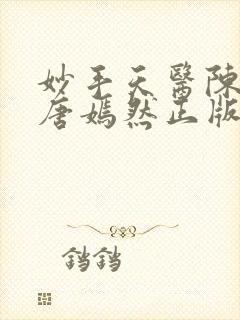 妙手天醫陳
唐嫣然正版
铛铛